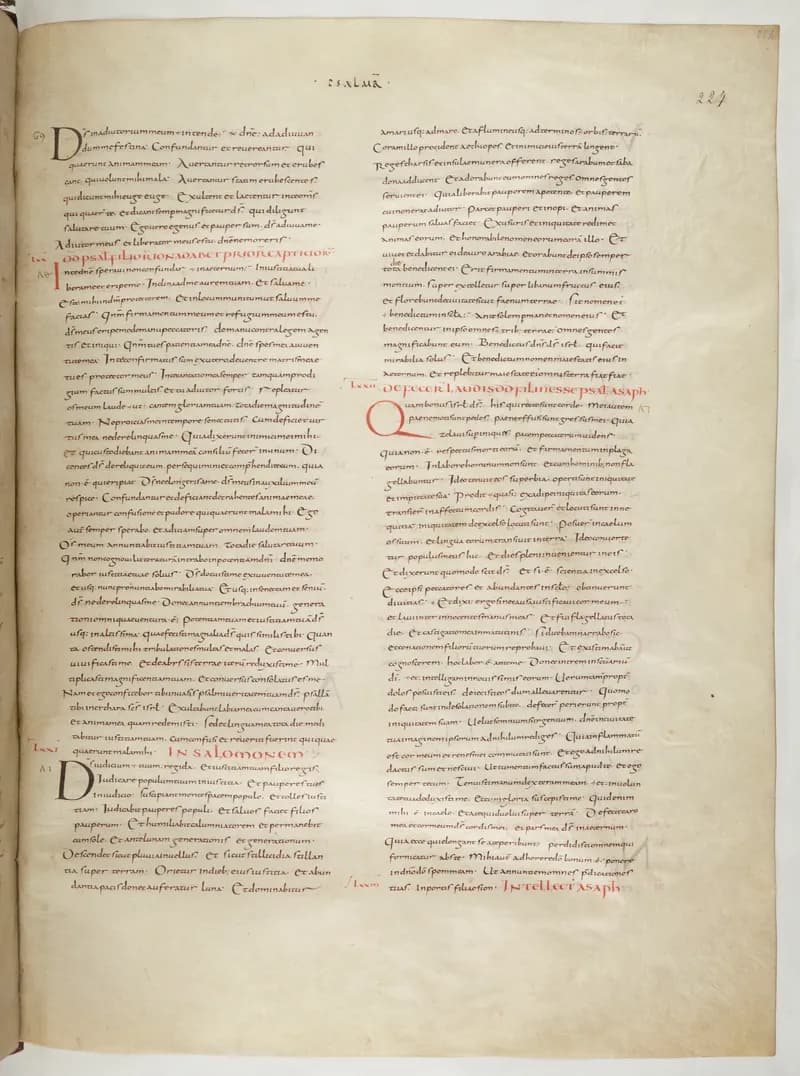 · PSALMꝰ ·
224
69 Dꝭ inadiutoriummeum intende· dñe adadiuuan
dummefestina· Confundantur et reuereantur qui
quaerunt animammeam· Auertantur retrorsum et erubes
cant quiuolunt mihi mala· Auertantur statim erubescentes
quidicunt mihi euge euge· Exultent et laetentur inte omnes
qui quaerunt te· et dicant semp magnificetur dꝭ qui diligunt
salutare tuum· Egouero egenus et pauper sum· dꝭ adiuuame·
Adiutor meus et liberator meus es tu· dñe nemoreris·
LXX
Inte dñe speraui nonconfundar inaeternum· Iniustitiatuali
berame et eripeme· Inclina admeaurem tuam· Et saluame·
Esto mihi indm protectorem· Et inlocum munitum ut saluumme
facias· Qnm firmamentum meum et refugium meum es tu·
dꝭ meus eripe me demanu peccatoris· demanu contra legem agen
tis et iniqui· Qnm tu es patientia mea dñe· dñe spes mea aiuuen
tute mea· Inte confirmatus sum exutero deuentre matris meae
tu es protector meus· Inte cantatio mea semper· tamquam prodi
gium factus sum multis et tu adiutor fortis· Repleatur
os meum laude· ut cantem gloriam tuam· tota die magnitudinem
tuam· Ne proicias me intempore senectutis· Cum defecerit uir
tus mea ne derelinquas me· Quia dixerunt inimici mei mihi·
et qui custodiebant animam meam consilium fecer̃ inunum· Di
centes dꝭ dereliquit eum· persequimini et comprehendite eum· quia
non·ē· qui eripiat· Dꝭ ne elongeris ame· dꝭ meus inauxilium meum
respice· Confundantur et deficiant detrahentes animae meae·
operiantur confusione et pudore qui quaerunt mala mihi· Ego
autē semper sperabo· Et adiciam super omnem laudem tuam·
Os meum annuntiabit iustitiam tuam· Tota die salutare tuum·
Qnm non cognoui litteraturā introibo inpotentiam dñi· dñe memo
rabor iustitiae tuae solius· Dꝭ docuisti me exiuuentute mea·
et usq; nunc pronuntiabo mirabilia tua· Et usq; insenectam et seniū·
dꝭ ne derelinquas me· Donec annuntiem brachium tuū· genera
tioni omni quae uentura ē· Potentiam tuam et iustitiam tuā dꝭ
usq; inaltissima· quae fecisti magnalia dꝭ quis similis tibi· Quan
tas ostendisti mihi tribulationes multas et malas· Et conuersus
uiuificasti me· Et deabyssis terrae iterū reduxisti me· Mul
tiplicasti magnificentiam tuam· Et conuersus consolatus es me·
Nam et ego confitebor tibi inuasis psalmi ueritatem tuam dꝭ· psallā
tibi incithara scꝭ isrl· Exultabunt labia mea cum cantauero tibi·
et anima mea quam redemisti· Sed et lingua mea tota die medi
tabitur iustitiam tuam· Cum confusi et reueriti fuerint qui quae
LXXI
runt mala mihi· IN SALOMONEM
Dꝭ iudicium tuum regi da· Et iustitiam tuam filio regis·
Iudicare populum tuum iniustitia· Et pauperes tuos
iniudicio· Suscipiant montes pacem populo· Et colles iusti
tiam· Iudicabit pauperes populi· Et saluos faciet filios
pauperum· Et humiliabit calumniatorem et permanebit
cum sole· Et ante lunam generationis et generationum·
Descendet sicut pluuia inuellus· Et sicut stillicidia stillan
tia super terram· Orietur indieb; eius iustitia· Et abun
dantia pacis donec auferatur luna· Et dominabitur
amari usq; admare· Et aflumine usq; adterminos orbis terrarū·
Coram illo procident aethiopes· Et inimici eius terrā lingent·
Reges tharsis et insulae munera offerent· reges arabum et saba
dona adducent· Et adorabunt eum omnes reges omnes gentes
seruient ei· Quia liberabit pauperem apotente· Et pauperem
cui non erat adiutor· Parcet pauperi et inopi· Et animas
pauperum saluas faciet· Ex usuris et iniquitate redimet
animas eorum· Et honorabile nomen eorum corā illo· Et
uiuet et dabitur ei deauro arabiae· Et orabunt deipso semper
tota die benedicent ei· Erit firmamentum interra insummis
montium· super extolletur super libanum fructus eius
et florebunt deciuitate sicut faenum terrae· Sit nomen ei
benedictum insaecla· Ante solem permanet nomen eius· Et
benedicentur inipso omnes trib; terrae· Omnes gentes
magnificabunt eum· Benedictus dñs dꝭ isrl· qui facit
mirabilia solus· Et benedictum nomen maiestatis eius in
aeternum· Et replebitur maiestate eius omnis terra fiat fiat·
LXXII DEFECER LAUDES DD FILII IESSE PSAL ASAPH
Quam bonus isrl dꝭ· his qui recto sunt corde· Mei autem
paene moti sunt pedes· paene effusi sunt gressus mei· Quia
zelaui super iniquos pacem peccatorum uidens·
Quia non·ē· respectus morti eorū· Et firmamentum inplaga
eorum· Inlabore hominum non sunt· Et cum hominib; non fla
gellabuntur· Ideo tenuit eos superbia· operti sunt iniquitate
et impietate sua· Prodiit quasi exadipe iniquitas eorum·
transier̃ inaffectum cordis· Cogitauer̃ et locuti sunt inne
quitia· iniquitatem inexcelso locuti sunt· Posuer̃ incaelum
os suum· Et lingua eorum transiuit interra· Ideo conuerte
tur populus meus hic· Et dies pleni inuenientur ineis·
Et dixerunt quomodo scit dꝭ· Et si·ē· scientia inexcelso·
Ecce ipsi peccatores et abundantes insclo obtinuerunt
diuitias· Et dixi ergo sine causa iustificaui cor meum·
et laui inter innocentes manus meas· Et fui flagellatus tota
die· Et castigatio mea inmatutinis· Si dicebam narrabo sic·
ecce nationem filiorū tuorum reprobaui· Et existimabam
cognoscerem hoc labor ē ante me· Donec intrem insanctuariū
dī· et intellegam innouissimis eorum· Uerum tamen propt
dolos posuisti eis· deiecisti eos dum alleuarentur· Quomo
do facti sunt indesolationem subito· defecer̃ perierunt propt
iniquitatem suam· Uelut somnium surgentium· dñe inciuitate
tua imaginem ipsorum adnihilum rediges· Quia inflammatū
est cor meum et renes mei commutati sunt· Et ego adnihilum re
dactus sum et nesciui· Ut iumentum factus sum apud te· Et ego
semper tecum· Tenuisti manum dexteram meam· et inuolun
tate tua deduxisti me· Et cum gloria suscepisti me· Quid enim
mihi·ē· incaelo· Et ate quid uolui super terrā· Defecit caro
mea et cor meum dꝭ cordis mei· Et pars mea dꝭ inaeternum·
Quia ecce qui elongant se ate peribunt· perdidisti omnem qui
fornicatur abs te· Mihi autē adherere dō bonum·ē· ponere
indño dō spem meam· Ut annuntiem omnes p̄dicationes
LXXIII tuas· Inportis filiae sion· INTELLECT ASAPH